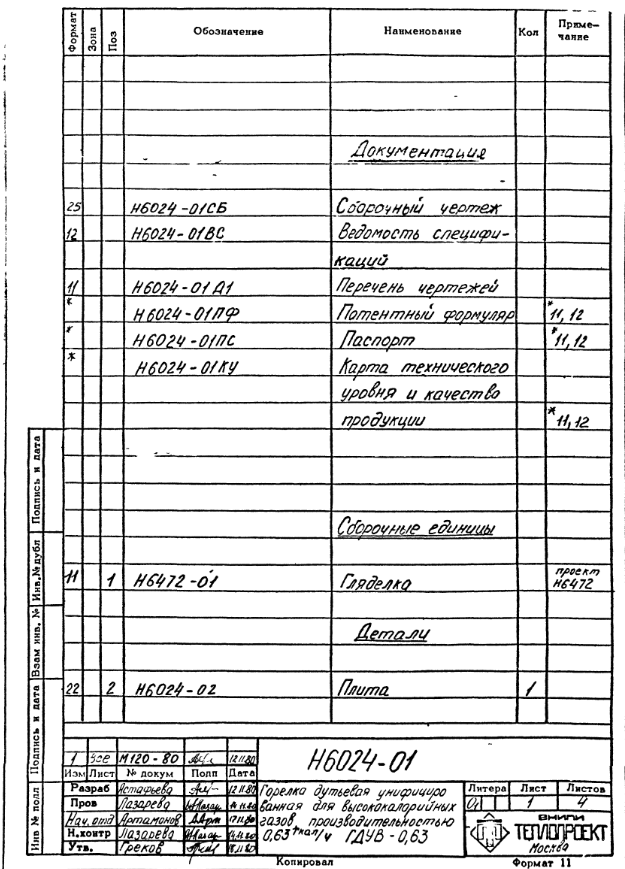 Формат Зона Поз Обозначение Наименование Кол Приме-
чание
Документация
25 Н6024-01СБ Сборочный чертеж
12 Н6024-01ВС Ведомость специфи-
каций
11 Н6024-01Д1 Перечень чертежей
* Н6024-01ПФ Потентный формуляр *11,12
* Н6024-01ПС Паспорт *11,12
* Н6024-01КУ Карта технического
уровня и качество
продукции *11,12
Сборочные единицы
11 1 Н6472-01 Гляделка проект
Н6472
Детали
22 2 Н6024-02 Плита 1
Подпись и дата
Инв.№дубл
Взам инв. №
Подпись и дата
Инв № подл
1 Все М120-80 12.11.80
Изм Лист № докум Подп Дата
Н6024-01
Разраб Астафьева 12.11.80
Пров Лазарева
Нач. отд Артамонов
Н.контр Лазарева
Утв. Греков
Горелка дутьевая унифициро
ванная для высококалорийных
газов производительностью
0,63 /ч ГДУВ-0,63
Литера Лист Листов
1 4
ВНИПИ
ТЕПЛОПРОЕКТ
Москва
Копировал Формат 11